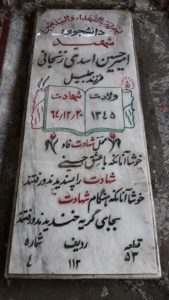 دانشجوی
شهید
امیرحسین اسدی زنجانی
فرزند خلیل
ولادت شهادت
۱۳۴۵ ۶۴/۱۲/۲۰
محل شهادت فاو
خوشا آنانکه با عشق خمینی
شهادت را پسندیدند و رفتند
خوشا آنانکه هنگام شهادت
بجای گریه خندیدند و رفتند
قطعه ردیف شماره
۵۳ ۱۱۲ ۴